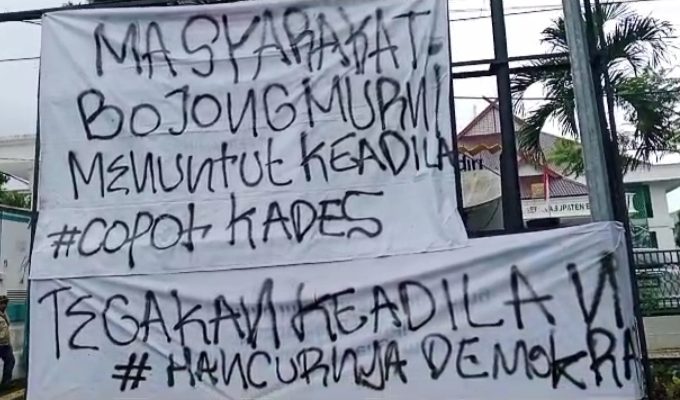 MASYARAKAT
BOJONG MURNI
MENUNTUT KEADILA
#COPOT KADES
TEGAKAN KEADILAN
# HANCURNJA DEMOKRA
diri
KABUPATEN B